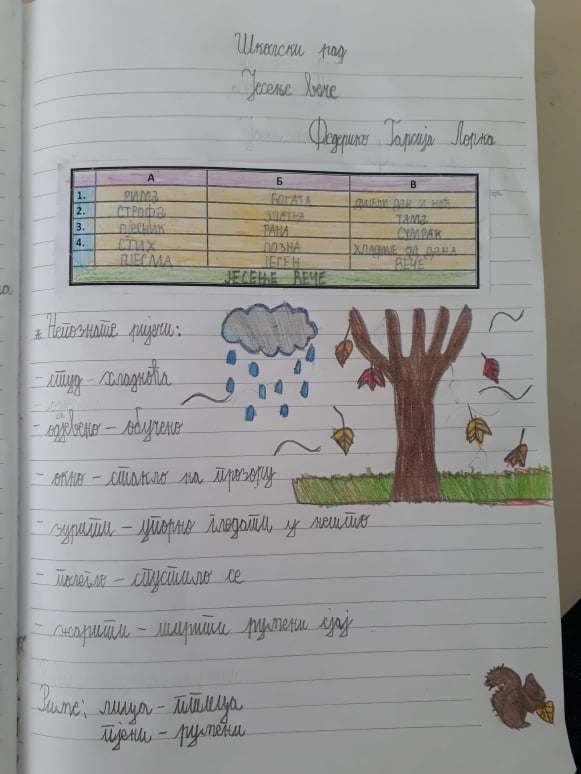 Школски рад
Јесење вече
Федерико Гарсија Лорка
А Б В
1. РИМА БОГАТА ДИЈЕЛИ ДАН И НОЋ
2. СТРОФА ЗЛАТНА ТАМА
3. ПЈЕСНИК РАНА СУМРАК
4. СТИХ ПОЗНА ХЛАДНИЈЕ ОД ДАНА
ПЈЕСМА ЈЕСЕН ВЕЧЕ
ЈЕСЕЊЕ ВЕЧЕ
* Непознате ријечи:
- студ - хладноћа
- одјевено - обучено
- окно - стакло на прозору
- зурити - упорно гледати у нешто
- полегло - спустило се
- жарити - ширити румени сјај
Риме: лица - птица
пјени - румени